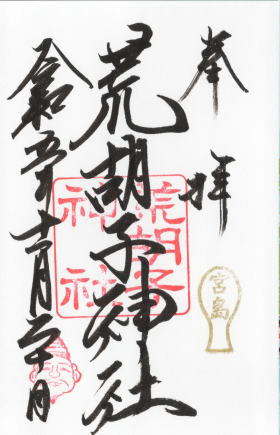 奉拝
宮島
荒胡子神社
荒胡子
神社
令和五年十一月二十日